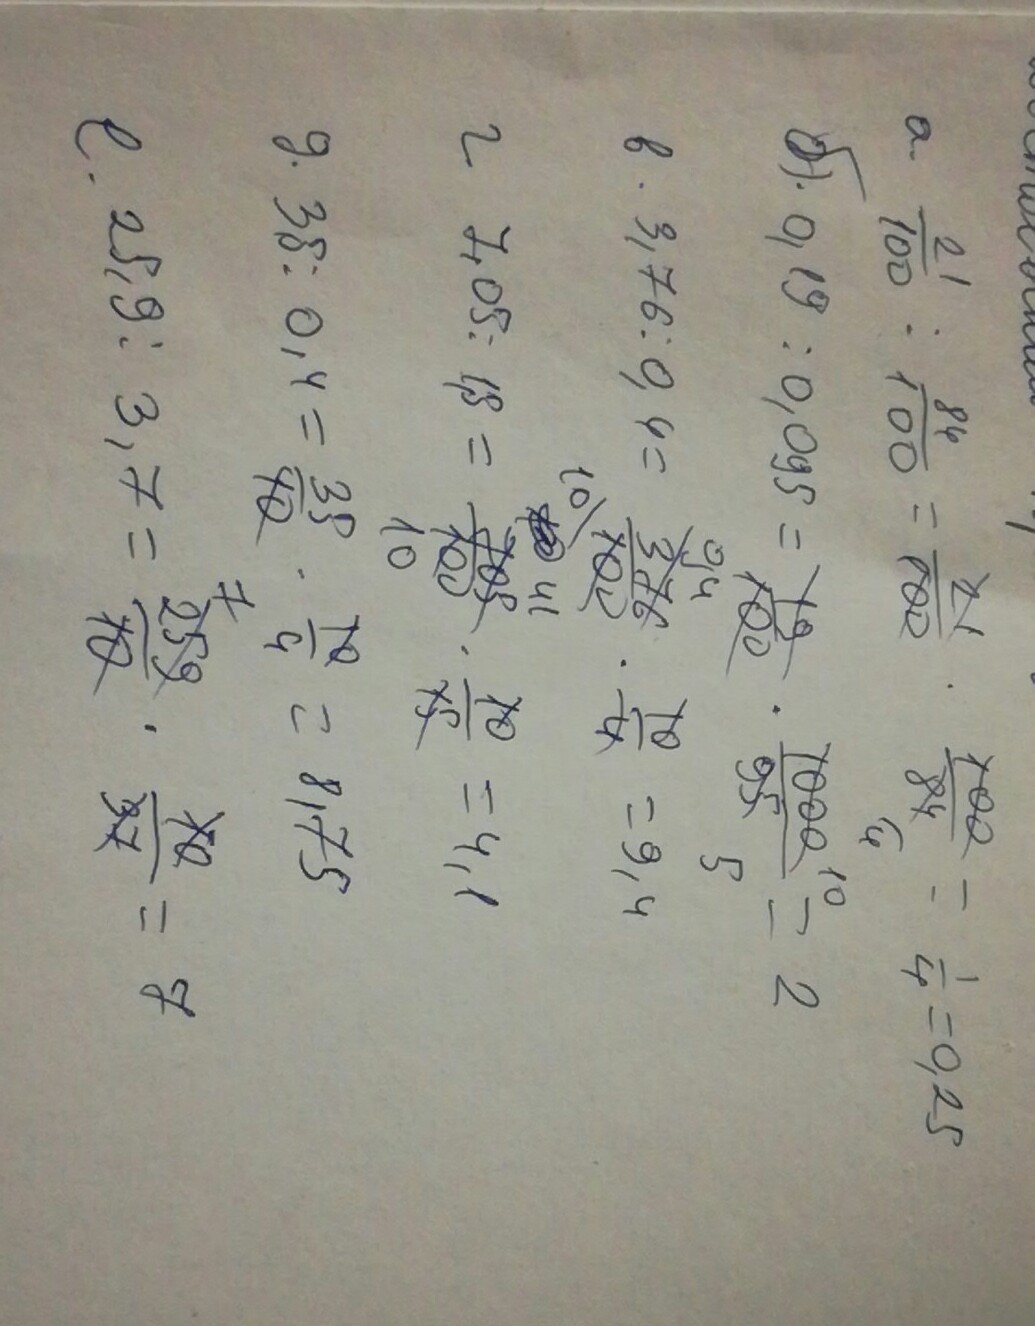 а. 21/100 : 84/100 = 21/100 · 100/84 4 = 1/4 = 0,25
б). 0,19 : 0,095 = 19/100 · 1000/95 10 5 = 2
в. 3,76 : 0,4 = 376/100 · 10/4 9,4 10 = 9,4
г 7,05 : 1,5 = 705/100 · 10/15 41 10 = 4,1
д. 35 : 0,4 = 35/10 · 10/4 = 8,75
е. 25,9 : 3,7 = 259/10 · 10/37 7 = 7